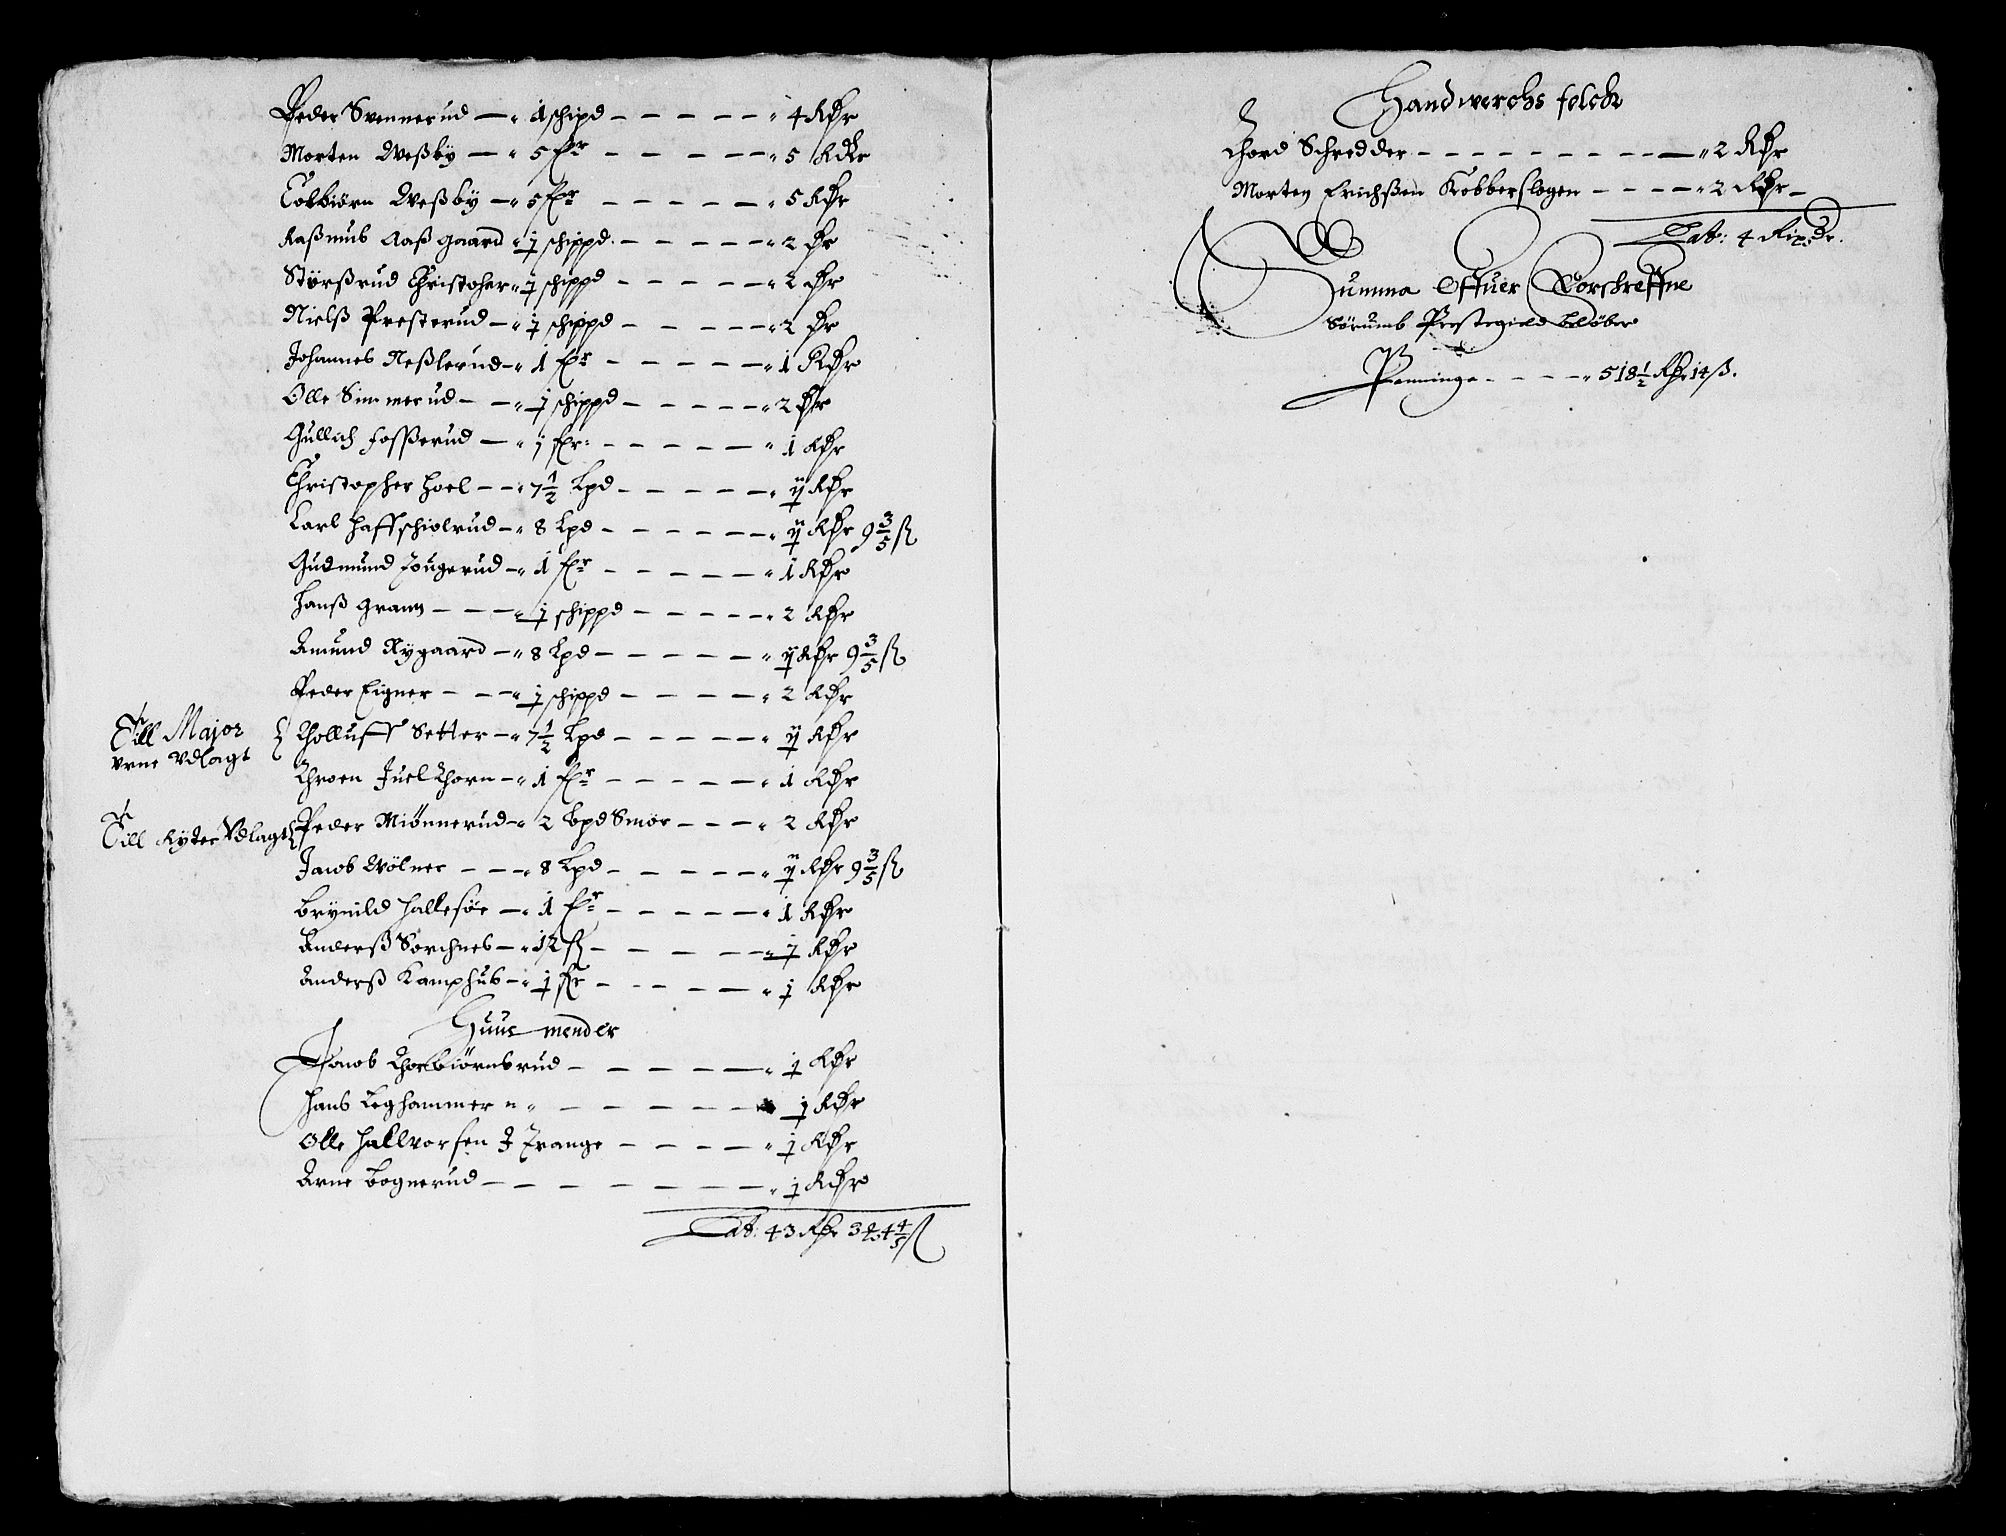 Peder Svennerud — 1 schipd — 4 Rdr
Morten Weßby — 5 fr — 5 Rdr
Torbiörn Weßby — 5 fr — 5 Rdr
Raßmus Aaß gaard ½ schippd — 2 dr
Störßrud Christopher ½ schippd — 2 dr
Nielß Presterud — ½ schippd — 2 dr
Johannes Neßlerud — 1 fr — 1 Rdr
Olle Simmerud — ½ schippd — 2 dr
Gullich fosserud — 1 fr: — 1 Rdr
Christopher Hoel — 7½ Lpd — ij Rdr
Carl Haffschiolrud — 8 Lpd — Rdr 9 3/5 ß
Gudmund Jougerud — 1 fr — 1 Rdr
Hanß Grann — ½ schippd — 2 Rdr
Amund Nygaard — 8 Lpd — Rdr 9 3/5 ß
Peder Eigner — ½ schippd — 2 Rdr
Till Major
Vrne Vdlagt
Tholluff Setter — 7½ Lpd — Rdr
Throen Juel Thorn — 1 fr — 1 Rdr
Till Ryter Vdlagt
Peder Miönnerud — 2 bpd Smör — 2 Rdr
Jacob Wölner — 8 Lpd — Rdr 9 3/5 ß
Brynild Hallesöe — 1 fr — 1 Rdr
Anderß Sorchnes — 12 ß — ½ Rdr
Anderß Kamphus — ½ fr — ½ Rdr
Huus mender
Jacob Thorbiörnsrud — ½ Rdr
Hans Leghammer — ½ Rdr
Olle Hallvorsen J Trange — ½ Rdr
Arne Bognerud — ½ Rdr
Lat: 43 Rdr 3 4/5 ß
Handwerchs folck
Thord Schredder — 2 Rdr
Morten Erichßen Kobberslagen — 2 Rdr
Lat: 4 Rixdr.
Summa Offuer Forschreffne
Sörumb Prestegield belöber
Penninge — 518½ Rdr 14 ß.